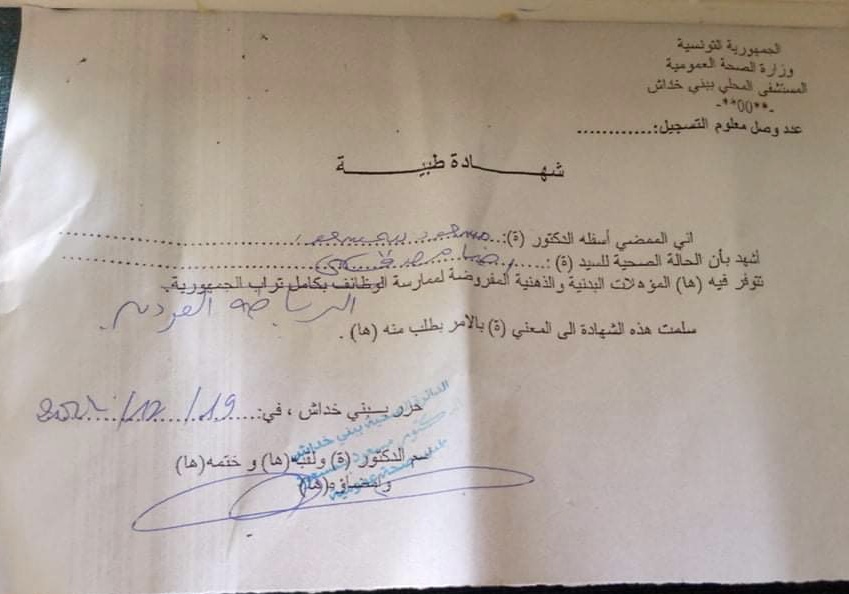 الجمهورية التونسية
وزارة الصحة العمومية
المستشفى المحلي ببني خداش
-**00**-
عدد وصل معلوم التسجيل:............
شهـــــــادة طبيـــــــــة
اني الممضي أسفله الدكتور (ة): مسعود
أشهد بأن الحالة الصحية للسيد (ة) :
تتوفر فيه (ها) المؤهلات البدنية والذهنية المفروضة لممارسة الوظائف بكامل تراب الجمهورية.
الرياضة الفردية
سلمت هذه الشهادة الى المعني (ة) بالامر بطلب منه (ها) .
حرر ببني خداش ، في: 19/12/
اسم الدكتور (ة) ولقبه(ها) و ختمه(ها)
وامضاؤه(ها)
الدائرة الصحية ببني خداش
الدكتور مسعود